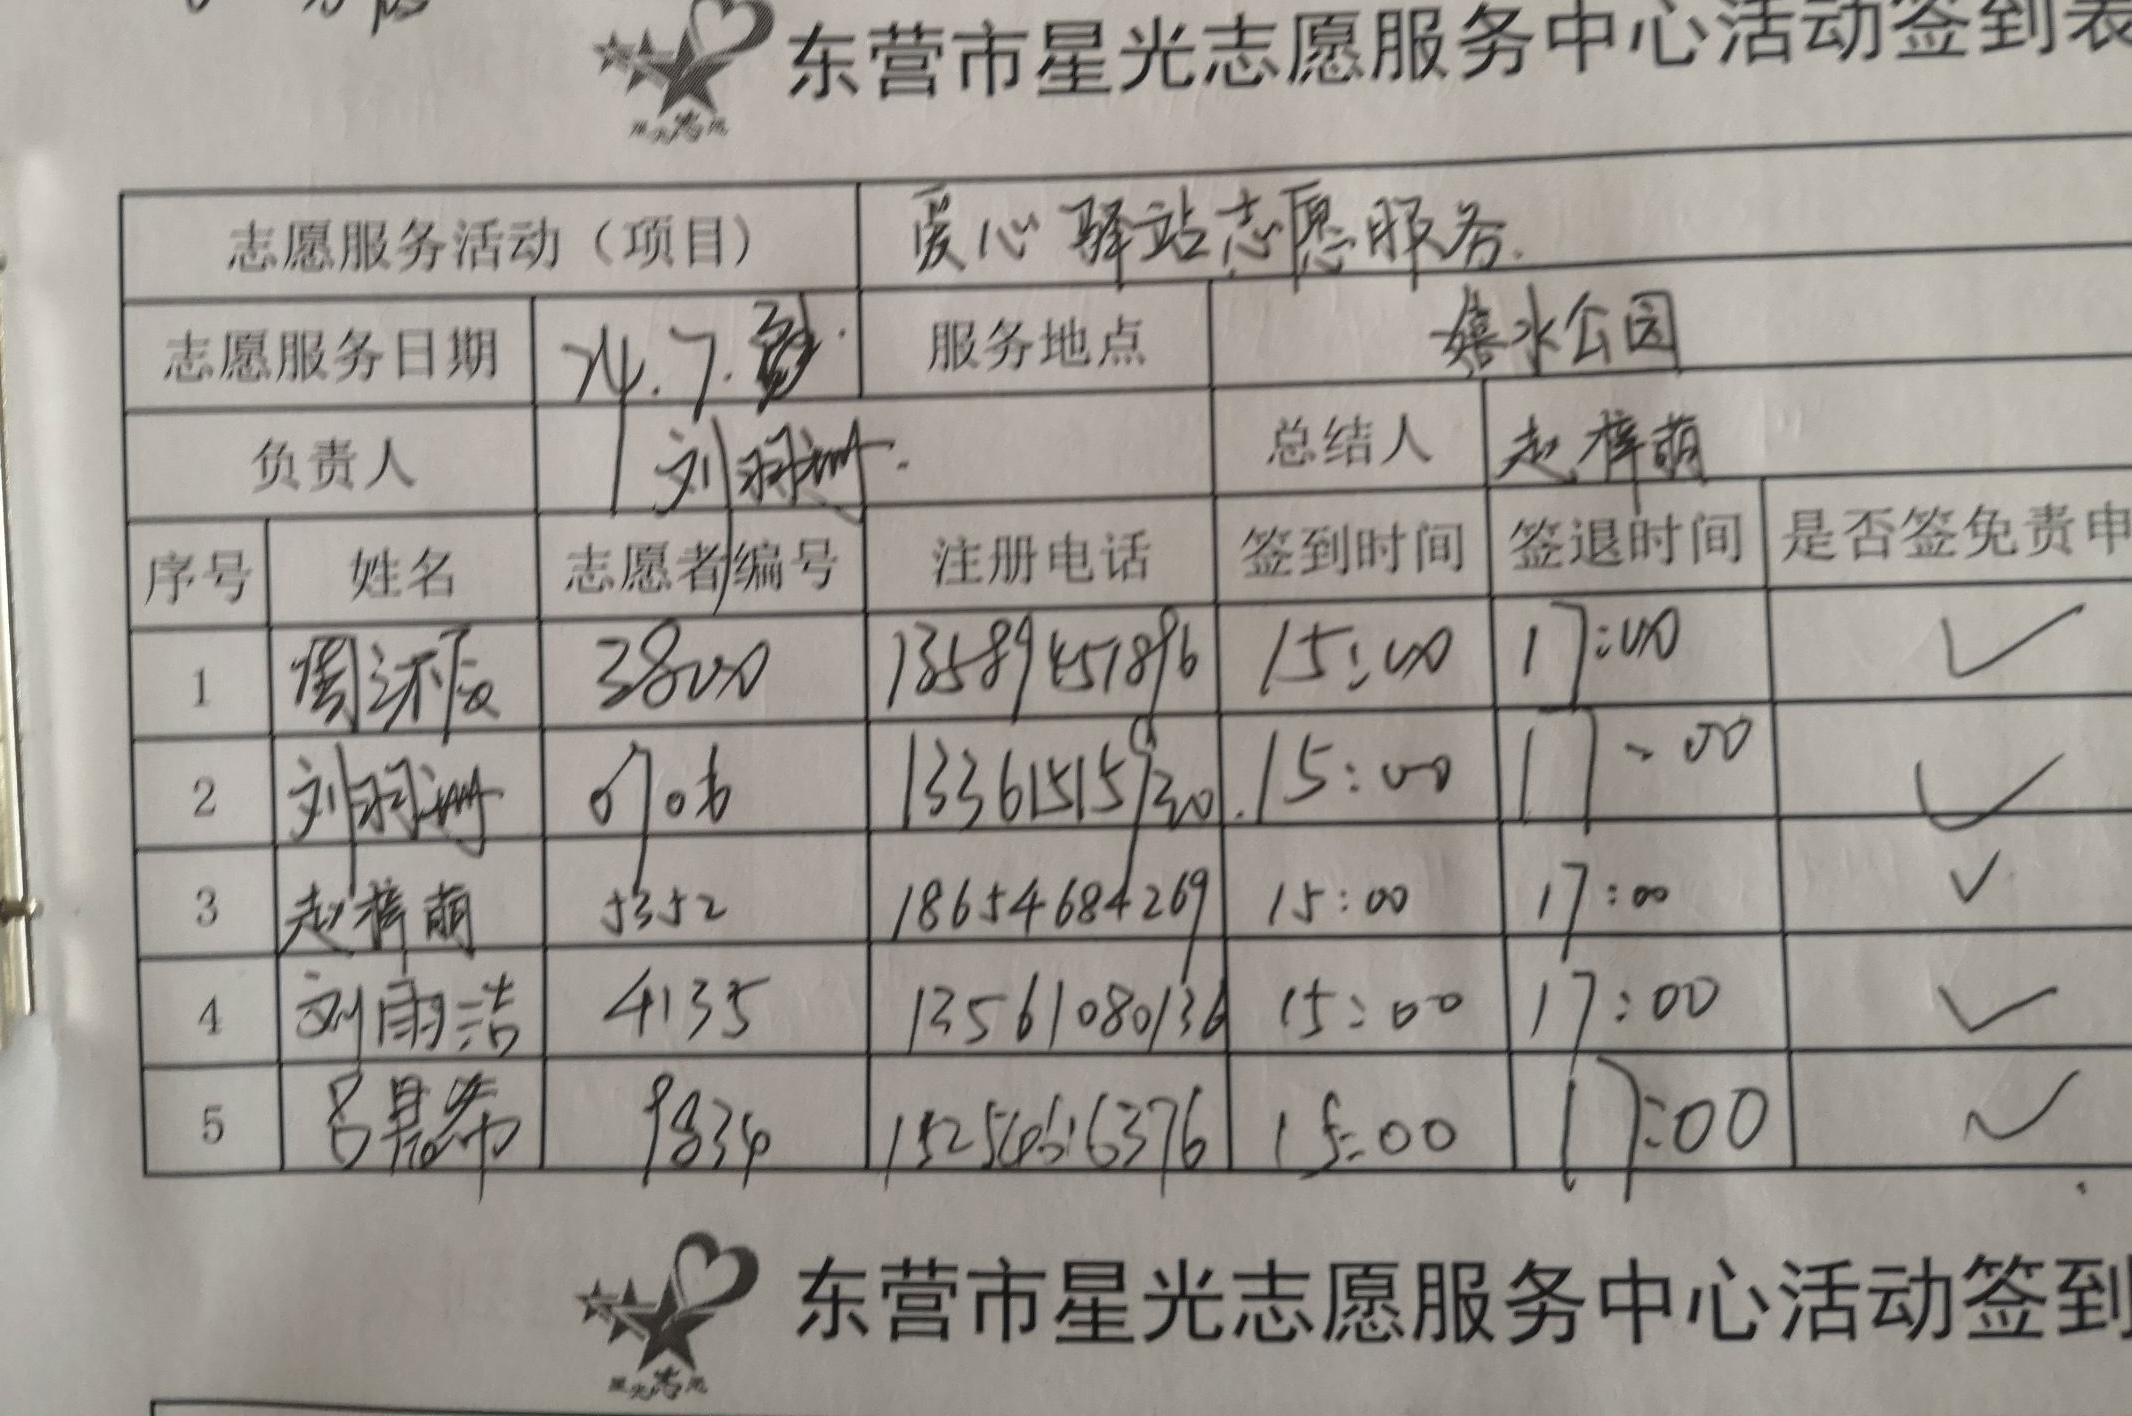 东营市星光志愿服务中心活动签到表
志愿服务活动（项目） 爱心驿站志愿服务.
志愿服务日期 24.7. 服务地点 嬉水公园
负责人 刘羽珊. 总结人 赵梓萌
序号 姓名 志愿者编号 注册电话 签到时间 签退时间 是否签免责申
1 周 3800 13589451896 15:00 17:00 ✓
2 刘羽珊 0706 13361515930 15:00 17:00 ✓
3 赵梓萌 5352 18654684269 15:00 17:00 ✓
4 刘雨洁 4135 13561080136 15:00 17:00 ✓
5 吕 9834 15254616376 15:00 17:00 ✓
东营市星光志愿服务中心活动签到